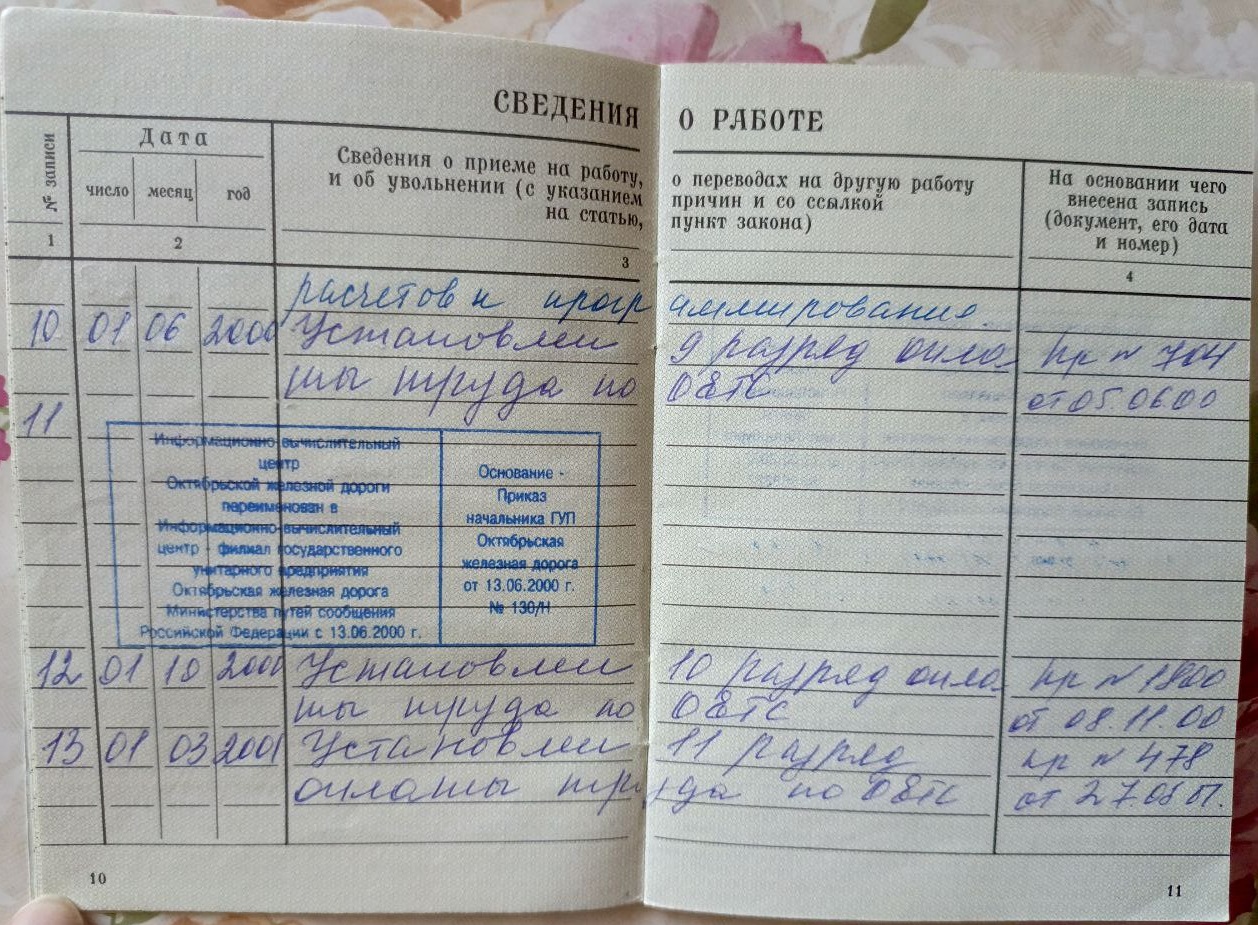 СВЕДЕНИЯ О РАБОТЕ
№ записи
Дата
число месяц год
Сведения о приеме на работу, о переводах на другую работу
и об увольнении (с указанием причин и со ссылкой
на статью, пункт закона)
На основании чего
внесена запись
(документ, его дата
и номер)
1 2 3 4
расчетов и программирования.
10 01 06 2000 Установлен 9 разряд опла пр № 704
ты труда по ОЕТС от 05.06.00
11
Информационно-вычислительный
центр
Октябрьской железной дороги
переименован в
Информационно-вычислительный
центр - филиал государственного
унитарного предприятия
Октябрьская железная дорога
Министерства путей сообщения
Российской Федерации с 13.06.2000 г.
Основание -
Приказ
начальника ГУП
Октябрьская
железная дорога
от 13.06.2000 г.
№ 130/Н
12 01 10 2000 Установлен 10 разряд опла пр № 1800
ты труда по ОЕТС от 08.11.00
13 01 03 2001 Установлен 11 разряд пр № 478
оплаты труда по ОЕТС от 27.
10
11